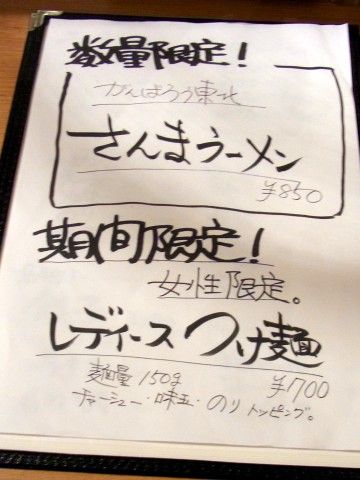 数量限定！
がんばろう東北
さんまラーメン
¥850
期間限定！
女性限定。
レディースつけ麺
麺量150g ¥700
チャーシュー・味玉・のりトッピング。